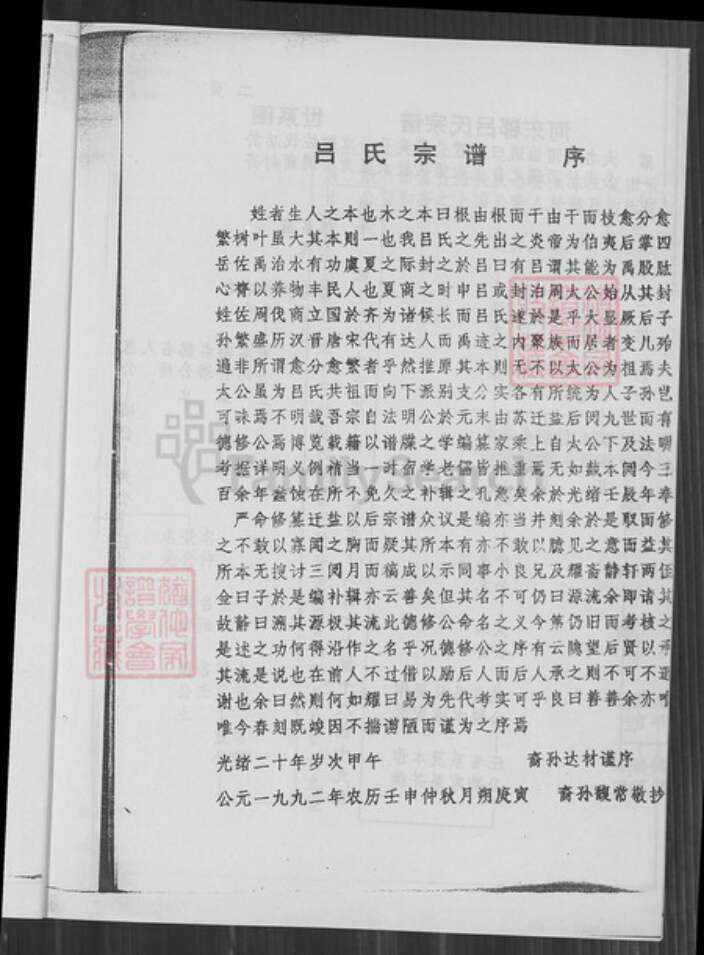 吕氏宗谱 序
姓者生人之本也木之本曰根由根而干由干而枝愈分愈
繁树叶虽大其本则一也我吕氏之先出之炎帝为伯夷后掌四
岳佐禹治水有功虞夏之际封之於吕曰有吕谓其能为禹股肱
心膂以养物丰民人也夏商之时申吕或封治周太公始从其封
姓佐周伐商立国於齐为诸候长而吕氏遂於是乎大显厥后子
孙繁盛历汉晋唐宋代有达人而吕迹之内聚族而居者变儿殆
遍非所谓愈分愈繁者乎然推原其本则无不以太公为祖焉夫
太公虽为吕氏共祖而向下派别支分实不有所统为人子孙
可味焉不明哉吾宗自法明公於元末由苏迁盐后阅九世而岂有
德修公焉博览载籍以谱牒之学编纂家乘上自太公下及法明
考据详明义例精当一时宿学老儒皆推重焉无如数本阅今三
百余年蠹蚀在所不免久之补辑之孔急矣余於光绪壬辰年奉
严命修篡迁盐以后宗谱众议是编亦当并刻余於是取而修
之不敢以寡闻之胸而疑其所本有亦不敢以臆见之意而益其
所本无搜讨三阅月而稿成以示同事小阮良及耀斋静轩两侄
佥曰子於是编补辑亦云善矣但其命名不可仍曰源流余即请其
故静曰溯其源极其流此名乎修公名之义序今第仍旧余而考其
是述之功何得沿作之名乎况德修公之可有人云望后贤以
其流是说也在前人不过借以励后人而后承之则不可不
谢也余曰然则何如耀曰易为先代考实可乎良曰善善余亦
唯今春刻既竣因不揣谫陋而谨为之序焉
光绪二十年岁次甲午 裔孙达材谨序
公元一九九二年农历壬申仲秋月朔庚寅 裔孙馥常敬抄
FamilySearch